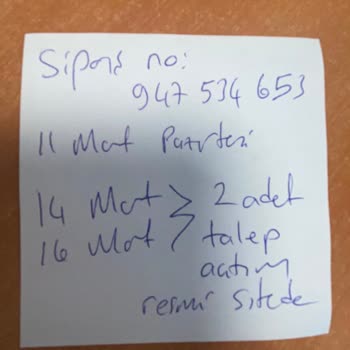 Sipariş no:
947 534 653
11 Mart Pazartesi
14 Mart > 2 adet
16 Mart talep
actım
resmi sitede